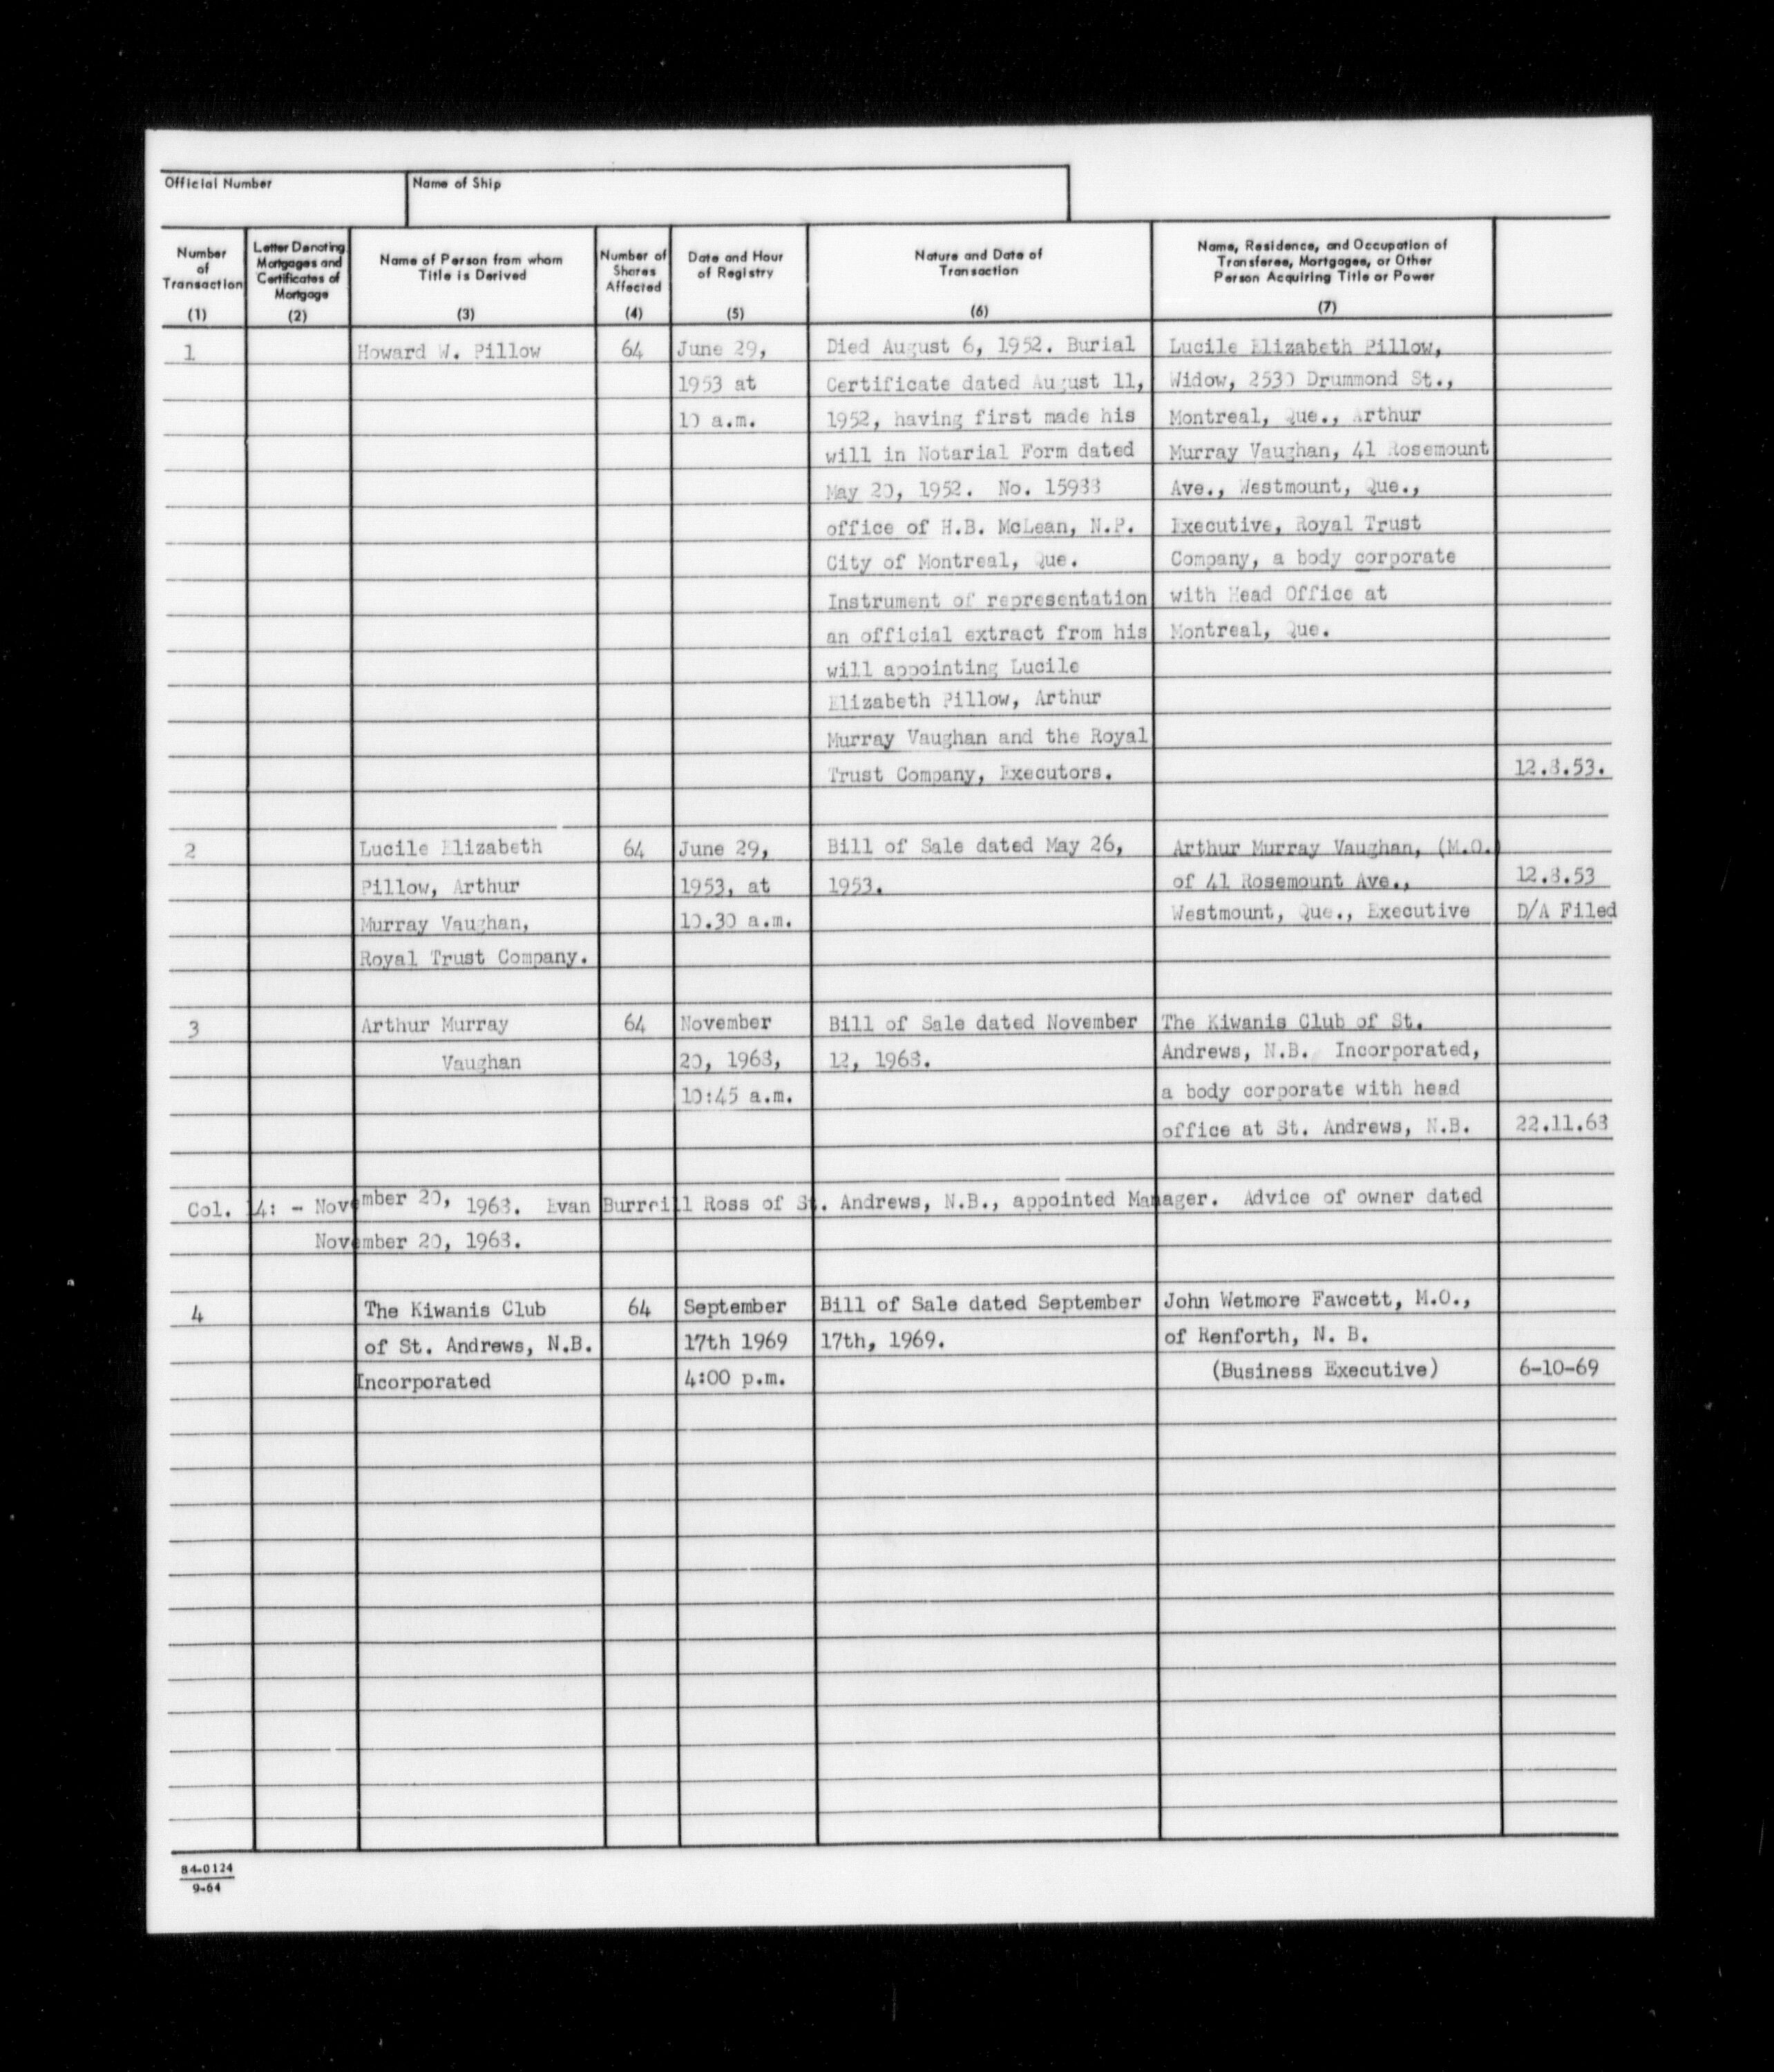 Official Number
Name of Ship
Number of Transaction (1)
Letter Denoting Mortgages and Certificates of Mortgage (2)
Name of Person from whom Title is Derived (3)
Number of Shares Affected (4)
Date and Hour of Registry (5)
Nature and Date of Transaction (6)
Name, Residence, and Occupation of Transferee, Mortgagee, or Other Person Acquiring Title or Power (7)
1 Howard W. Pillow 64 June 29, Died August 6, 1952. Burial Lucile Elizabeth Pillow,
1953 at Certificate dated August 11, Widow, 2530 Drummond St.,
10 a.m. 1952, having first made his Montreal, Que., Arthur
will in Notarial Form dated Murray Vaughan, 41 Rosemount
May 20, 1952. No. 15938 Ave., Westmount, Que.,
office of H.B. McLean, N.P. Executive, Royal Trust
City of Montreal, Que. Company, a body corporate
Instrument of representation with Head Office at
an official extract from his Montreal, Que.
will appointing Lucile
Elizabeth Pillow, Arthur
Murray Vaughan and the Royal
Trust Company, Executors. 12.8.53.
2 Lucile Elizabeth 64 June 29, Bill of Sale dated May 26, Arthur Murray Vaughan, (M.O.)
Pillow, Arthur 1953, at 1953. of 41 Rosemount Ave., 12.8.53
Murray Vaughan, 10.30 a.m. Westmount, Que., Executive D/A Filed
Royal Trust Company.
3 Arthur Murray 64 November Bill of Sale dated November The Kiwanis Club of St.
Vaughan 20, 1968, 12, 1968. Andrews, N.B. Incorporated,
10:45 a.m. a body corporate with head
office at St. Andrews, N.B. 22.11.68
Col. 14: - November 20, 1968. Evan Burreill Ross of St. Andrews, N.B., appointed Manager. Advice of owner dated
November 20, 1968.
4 The Kiwanis Club 64 September Bill of Sale dated September John Wetmore Fawcett, M.O.,
of St. Andrews, N.B. 17th 1969 17th, 1969. of Renforth, N. B.
Incorporated 4:00 p.m. (Business Executive) 6-10-69
84-0124
9-64